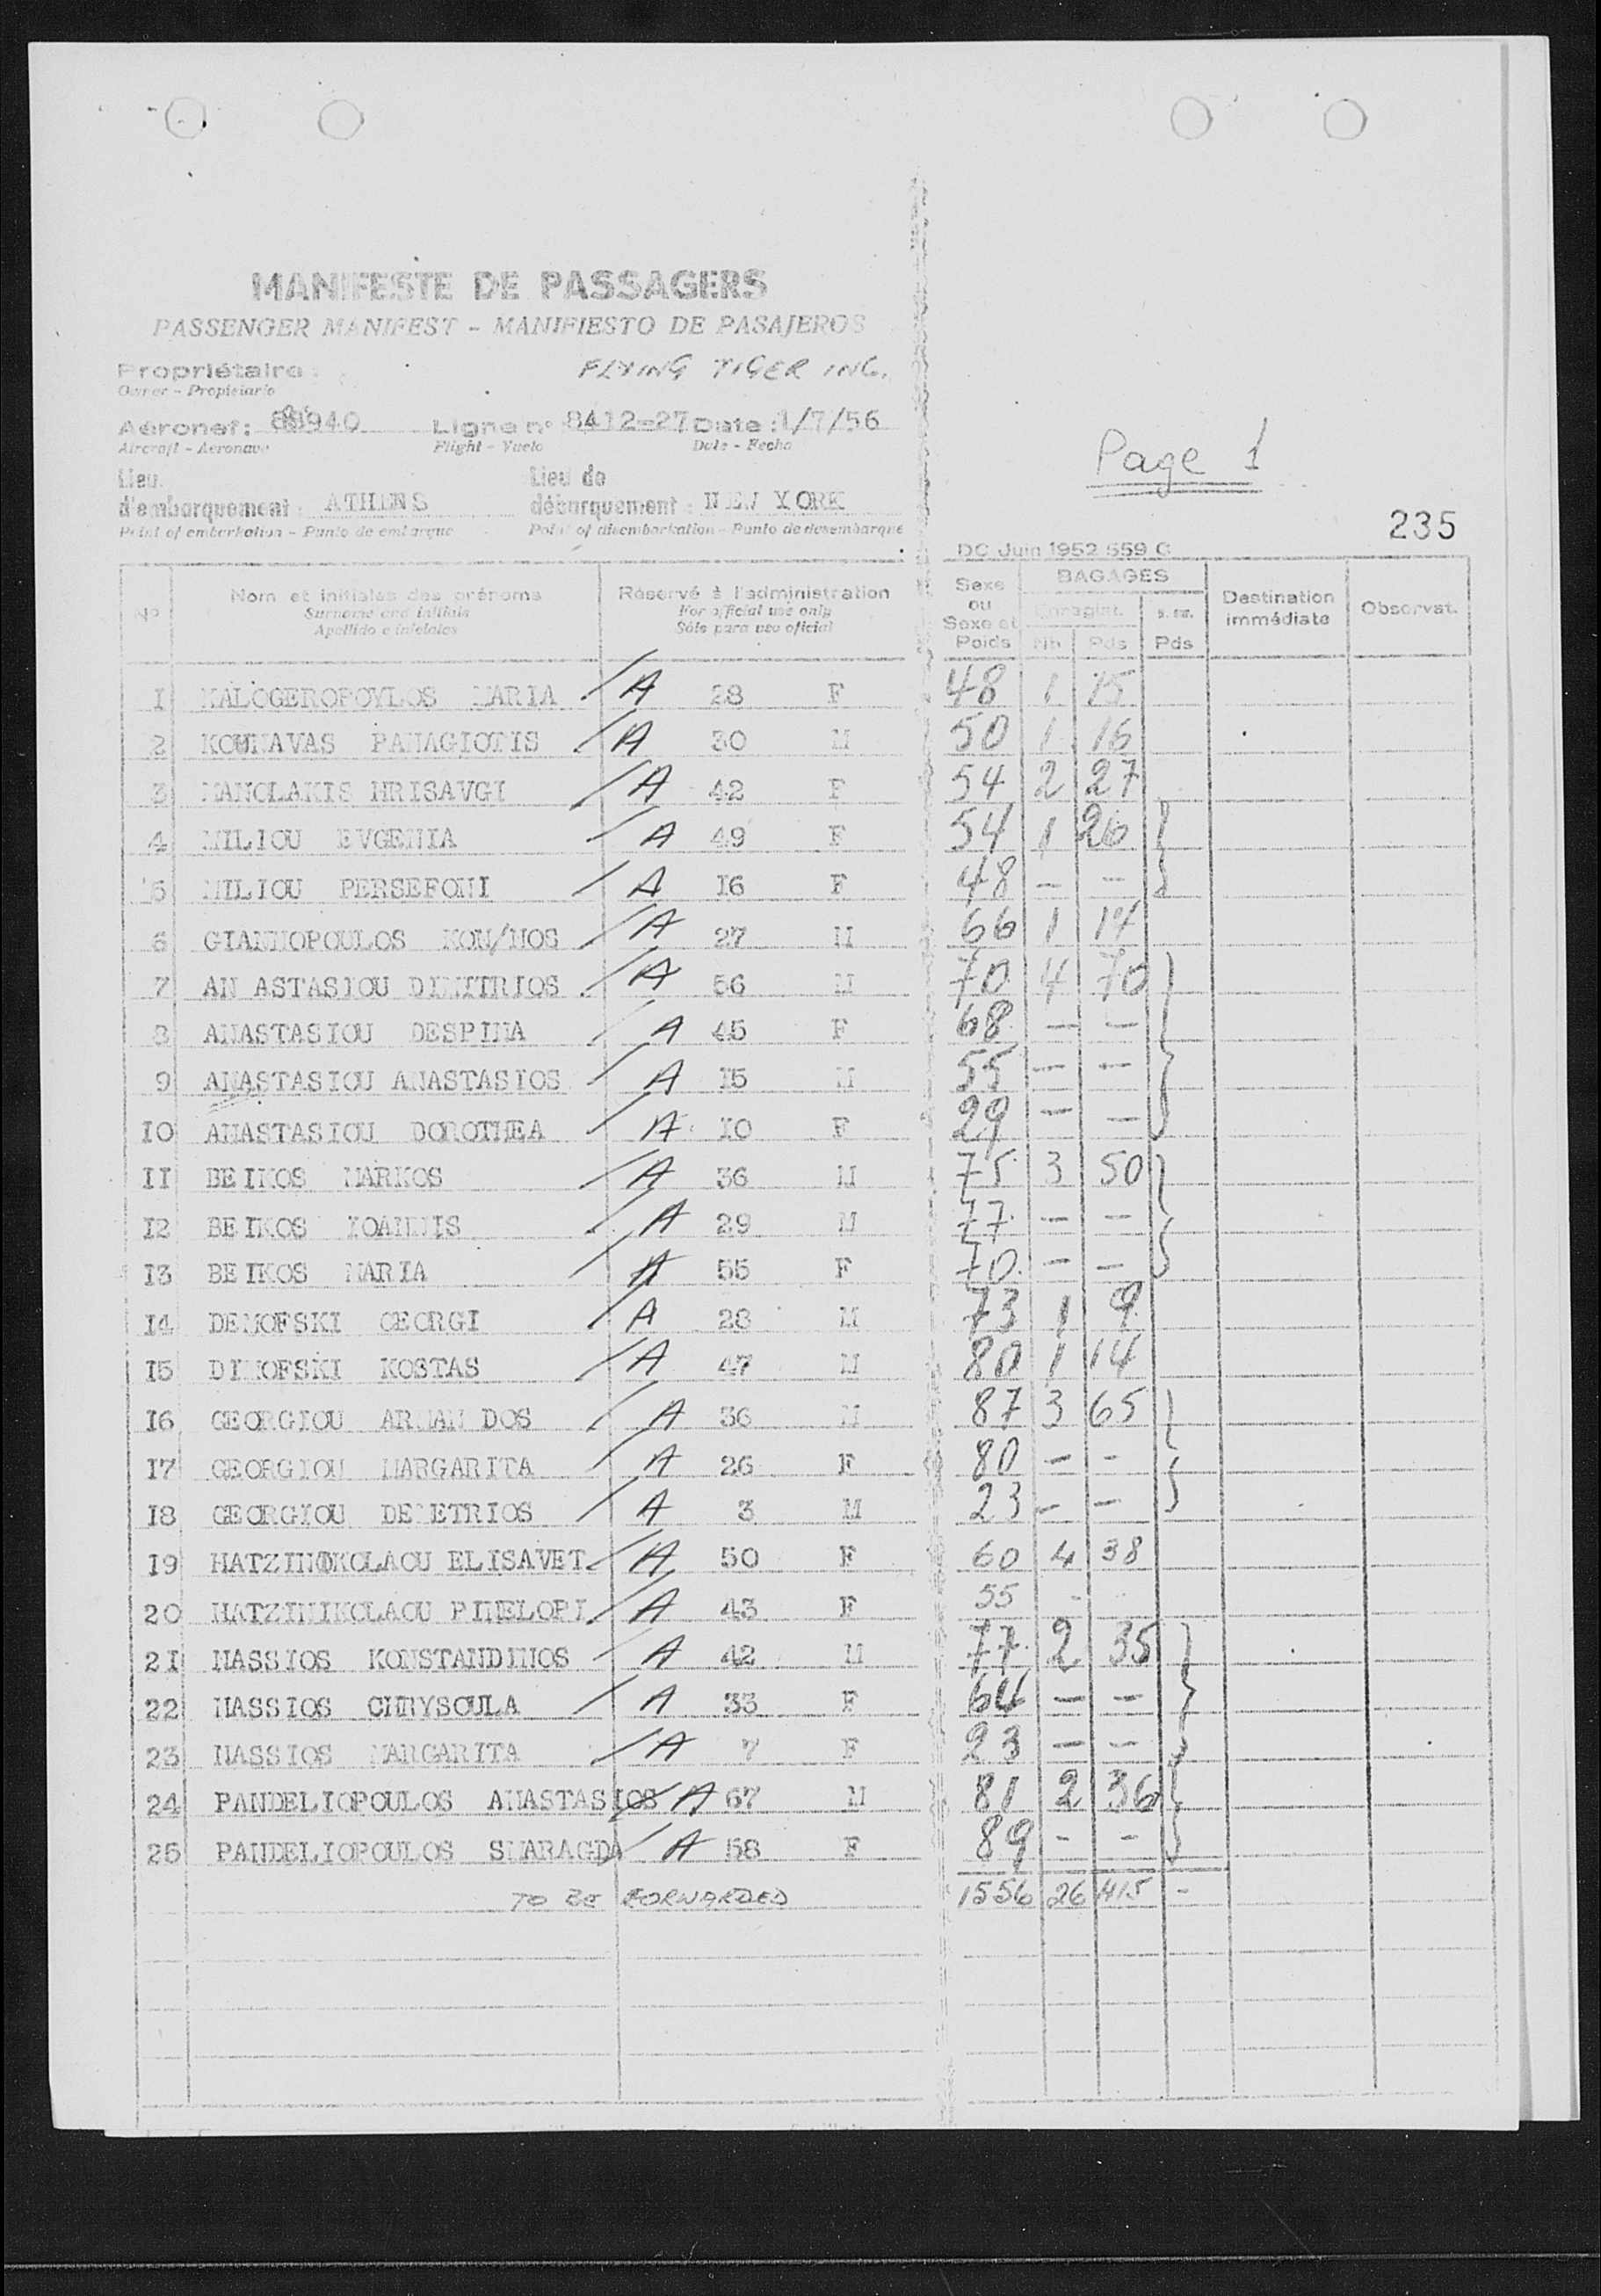 MANIFESTE DE PASSAGERS
PASSENGER MANIFEST - MANIFIESTO DE PASAJEROS
Propriétaire : FLYING TIGER INC.
Owner - Propietario
Aéronef : 940 Ligne n° 8412-27 Date : 1/7/56
Aircraft - Aeronave Flight - Vuelo Date - Fecha
Page 1
Lieu d'embarquement : ATHENS Lieu de débarquement : NEW YORK
Point of embarkation - Punto de embarque Point of disembarkation - Punto de desembarque
235
DC Juin 1952 659 G
N° Nom et initiales des prénoms Réservé à l'administration Sexe ou Sexe et Poids BAGAGES Destination immédiate Observat.
Surname and initials For official use only Enregist.
Apellido e iniciales Sólo para uso oficial Nb Pds Pds
1 KALOGEROPOYLOS MARIA / A 28 F 48 1 15
2 KOUNAVAS PANAGIOTIS / A 30 M 50 1 16
3 MANOLAKIS HRISAVGI / A 42 F 54 2 27
4 MILIOU EVGENIA / A 49 F 54 1 26
5 MILIOU PERSEFONI / A 16 F 48 - -
6 GIANNOPOULOS KON/NOS / A 27 M 66 1 14
7 AN ASTASIOU DIMITRIOS / A 56 M 70 4 70
8 ANASTASIOU DESPINA / A 45 F 68 - -
9 ANASTASIOU ANASTASIOS / A 15 M 55 - -
10 ANASTASIOU DOROTHEA / A 10 F 29 - -
11 BEIKOS MARKOS / A 36 M 75 3 50
12 BEIKOS IOANNIS / A 29 M 77 - -
13 BEIKOS MARIA / A 55 F 70 - -
14 DEMOFSKI GEORGI / A 28 M 73 1 9
15 DIMOFSKI KOSTAS / A 47 M 80 1 14
16 GEORGIOU ARMAN DOS / A 36 M 87 3 65
17 GEORGIOU MARGARITA / A 26 F 80 - -
18 GEORGIOU DEMETRIOS / A 3 M 23 - -
19 HATZINIKOLAOU ELISAVET / A 50 F 60 4 38
20 HATZINIKOLAOU PINELOPI / A 43 F 55 -
21 NASSIOS KONSTANDINOS / A 42 M 77 2 35
22 NASSIOS CHRYSOULA / A 33 F 64 - -
23 NASSIOS MARGARITA / A 7 F 23 - -
24 PANDELIOPOULOS ANASTASIOS / A 67 M 81 2 36
25 PANDELIOPOULOS SMARAGDA / A 58 F 89 - -
TO BE FORWARDED 1556 26 415 -